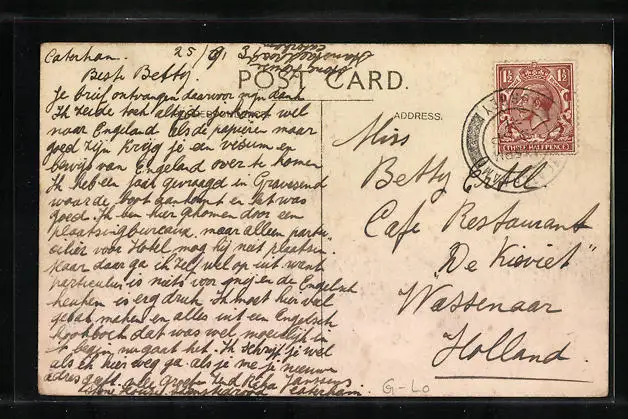 Caterham. 25/9/31
Beste Betty.
POST CARD.
Je brief ontvangen daarvoor mijn dank
Ik zeide toch altijd je komt wel
CORRESPONDENCE
naar Engeland als de papieren maar
goed zijn krijg je een visum en
bewijs van Engeland over te komen
Ik heb een gevraagd in Gravesend
waar de boot aankomt en het was
goed. Ik ben hier gekomen door een
plaatsingbureaux, maar alleen parti-
culier voor Hotel mag hij niet plaatsen.
Maar daar ga ik zelf wel op uit want
particulier is niets voor mij en de Engelsche
keuken is erg druk. Ik moet hier veel
gebak maken en alles uit een Engelsch
kookboek dat was wel moeilijk in
't begin nu gaat het. Ik schrijf je wel
als ik hier weg ga als je me je nieuwe
adres geeft. Vele Groeten
Caterham.
ADDRESS.
THREE HALFPENCE
Miss
Betty
Cafe Restaurant
"De Kieviet"
Wassenaar
Holland.
G-Lo